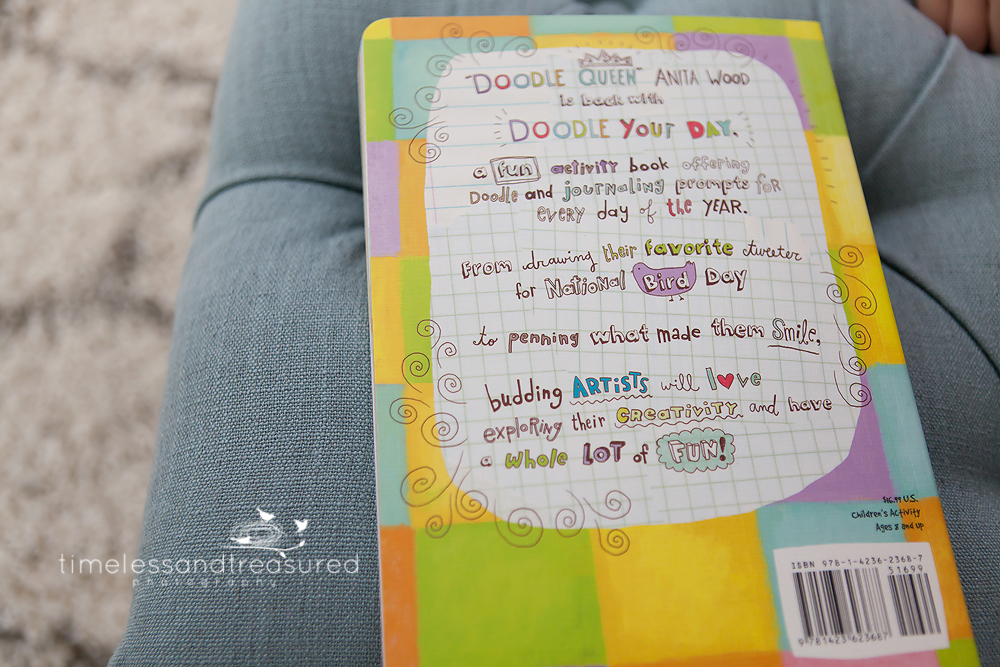 "DOODLE QUEEN" ANITA WOOD
is back with
DOODLE YOUR DAY.
a fun activity book offering
Doodle and journaling prompts for
every day of the YEAR.
From drawing their favorite tweeter
for National Bird Day
to penning what made them Smile,
budding ARTISTS will love
exploring their CREATIVITY and have
a whole LOT of FUN!
$16.99 U.S.
Children's Activity
Ages 8 and up
ISBN 978-1-4236-2368-7
51699
9 781423 623687
timelessandtreasured
photography